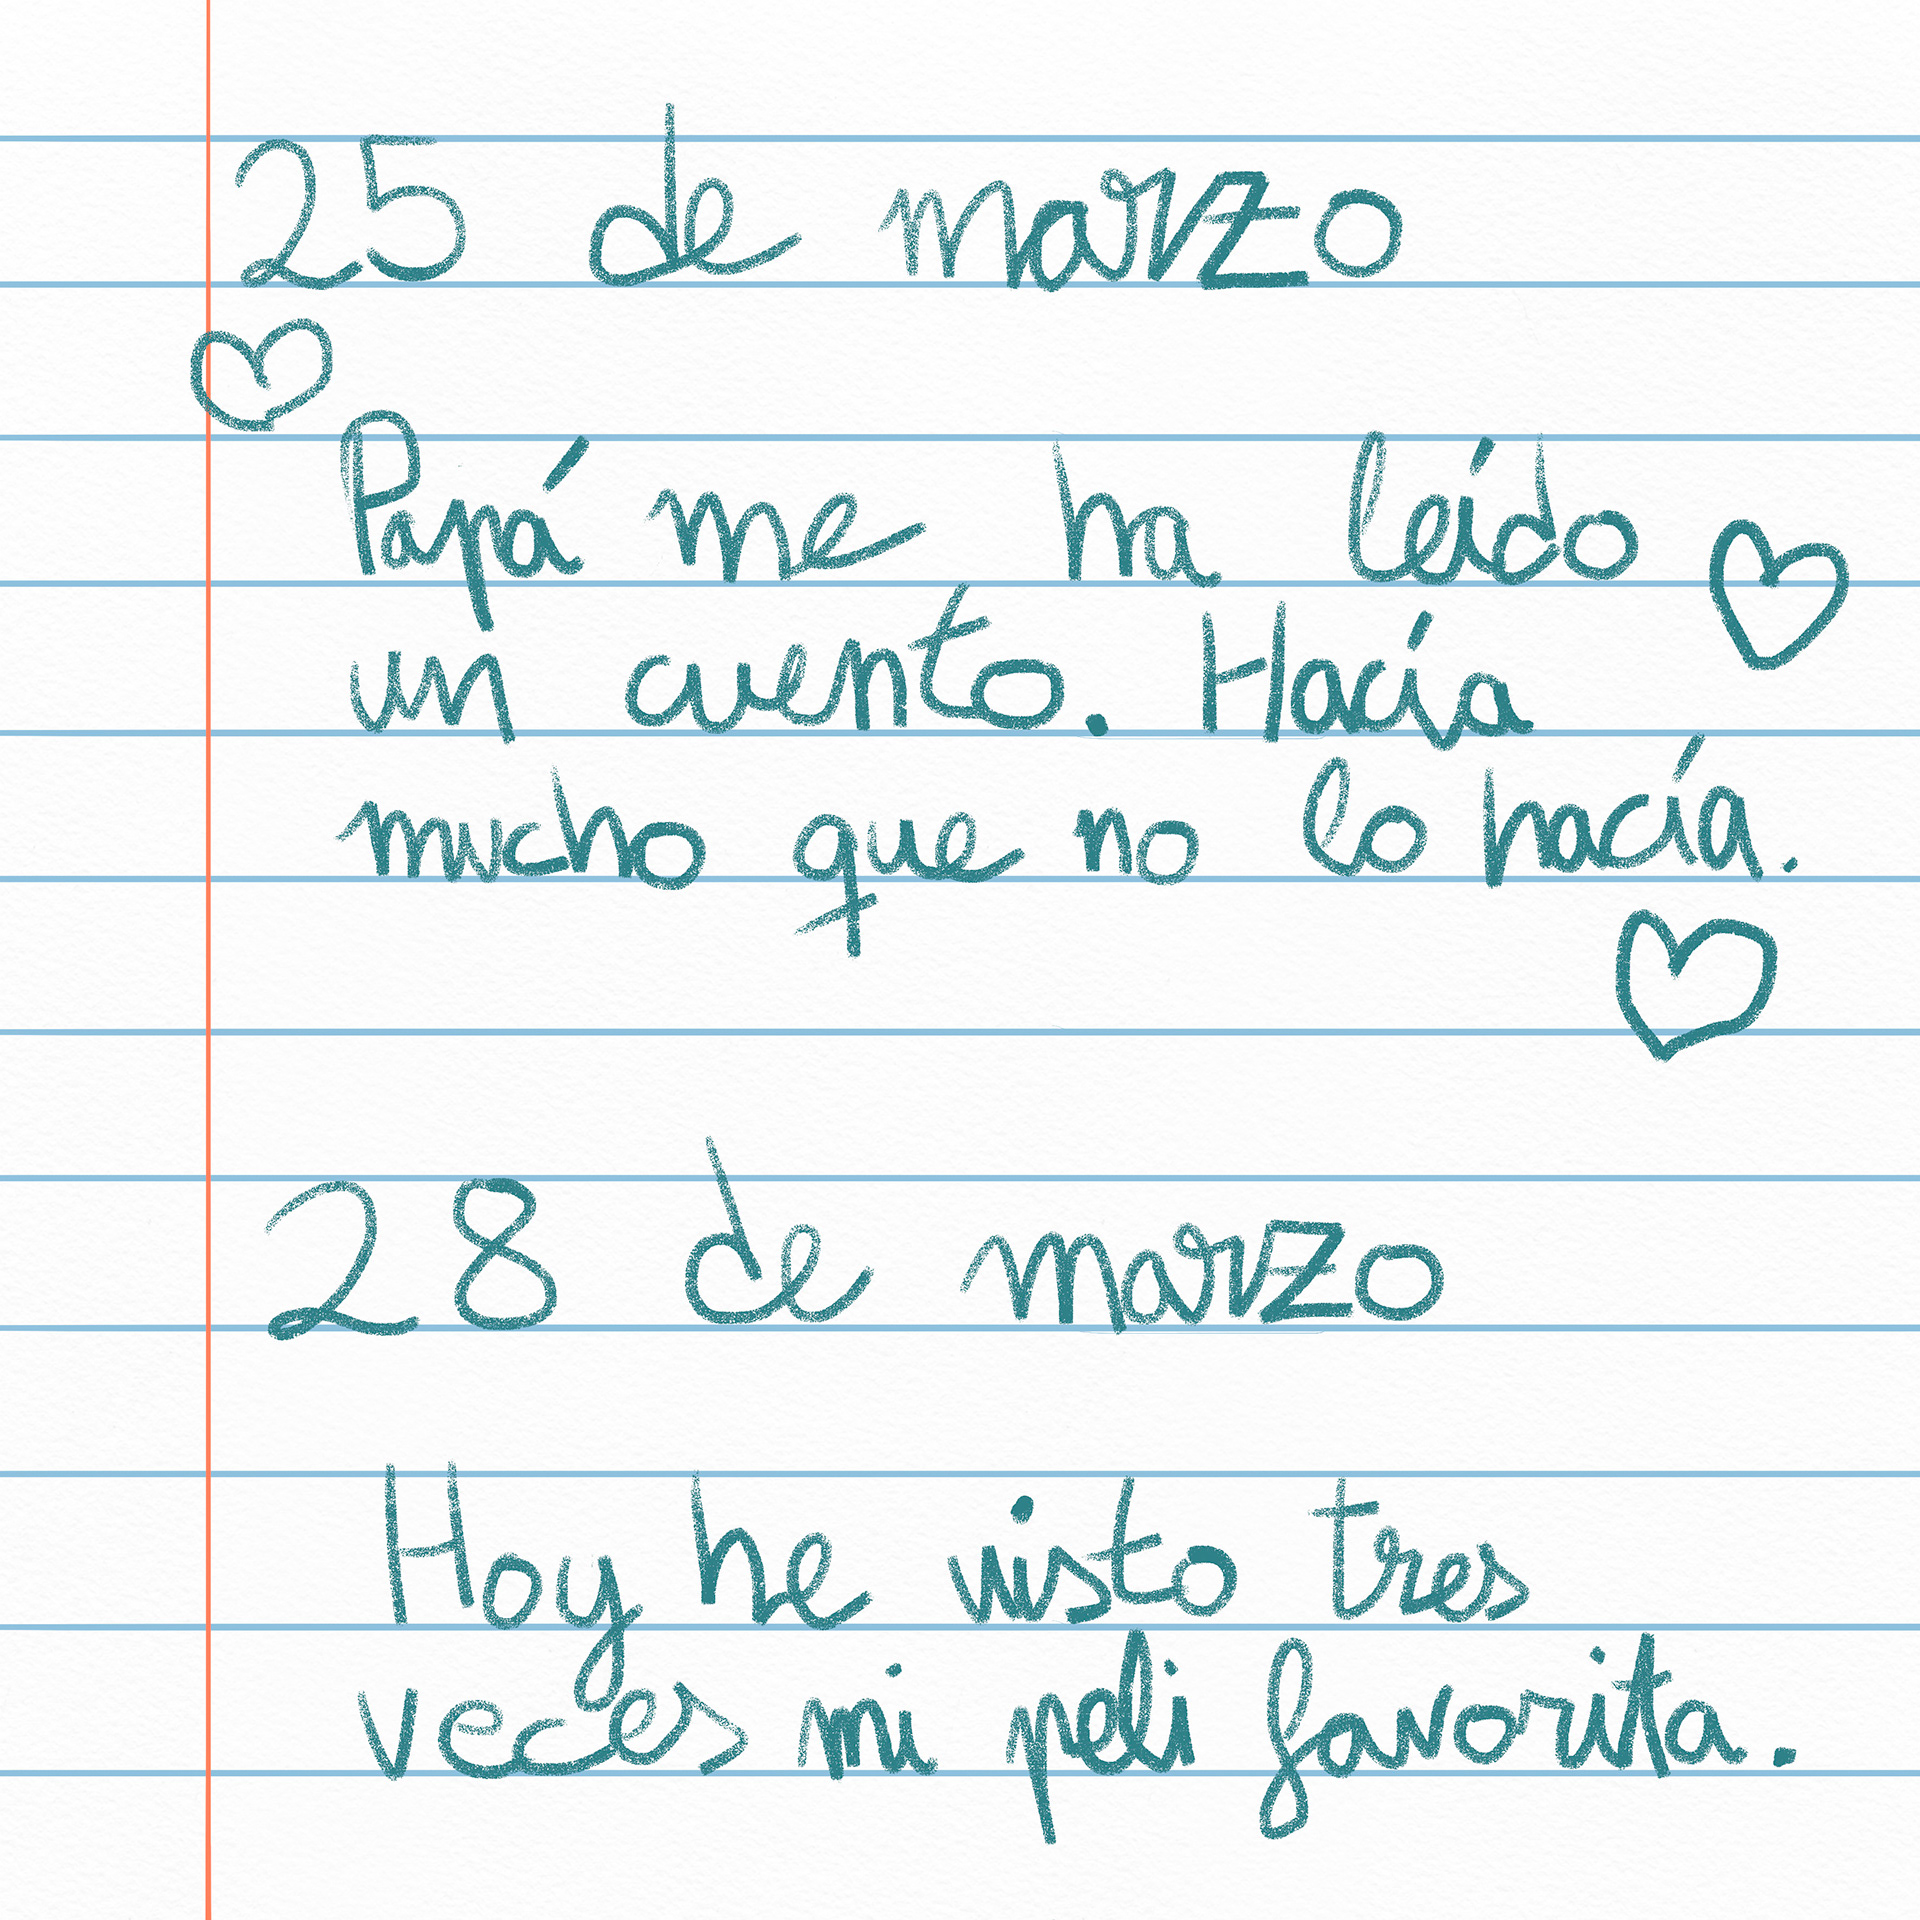 25 de marzo
Papá me ha leído
un cuento. Hacía
mucho que no lo hacía.
28 de marzo
Hoy he visto tres
veces mi peli favorita.